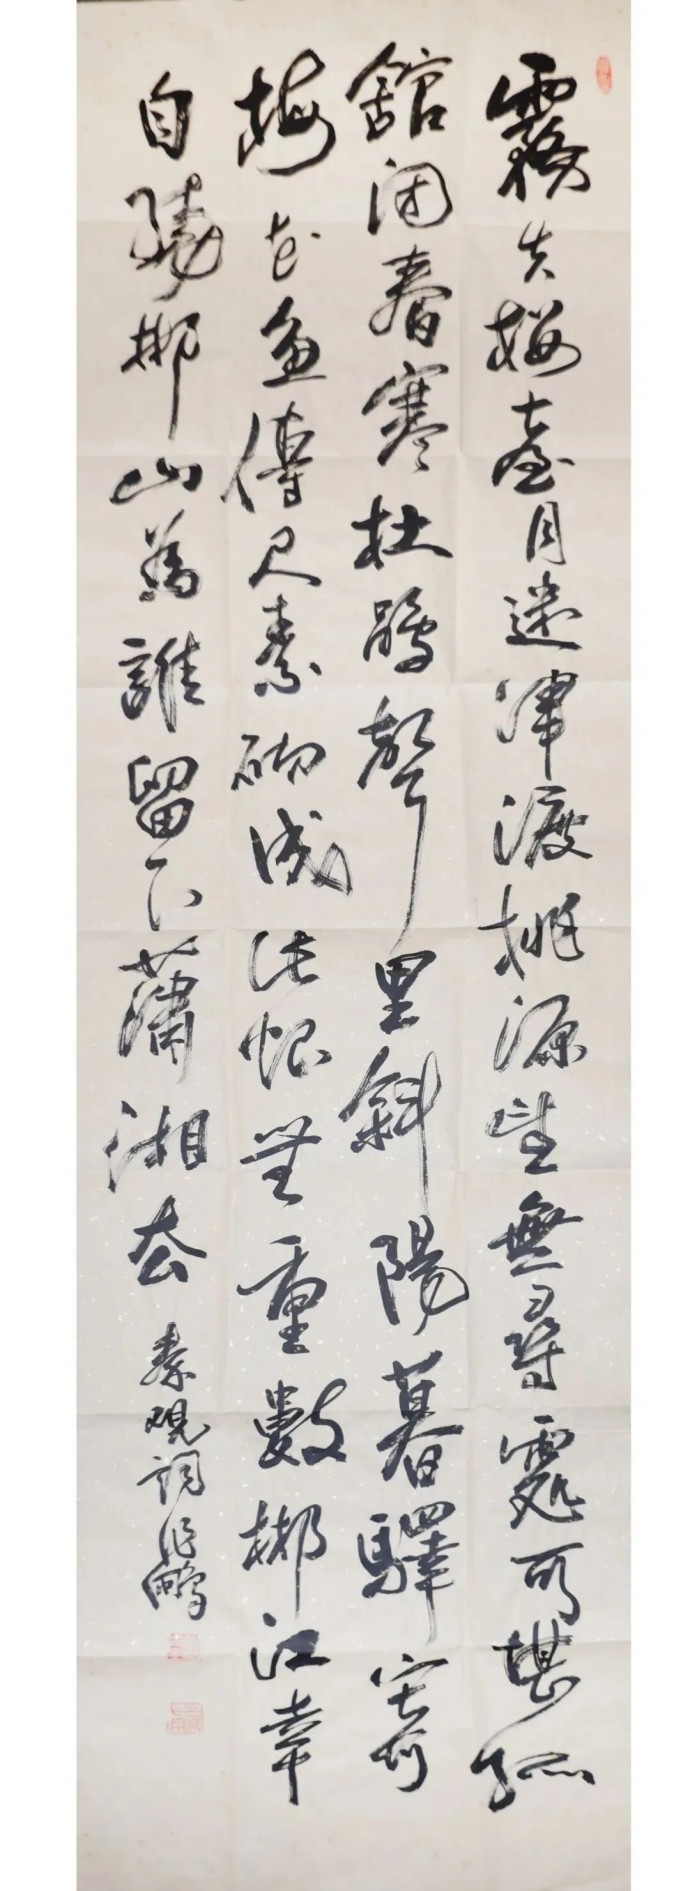 霧失樓臺月迷津渡桃源望無尋處可堪孤
館閉春寒杜鵑聲里斜陽暮驛寄
梅花魚傳尺素砌成此恨無重數郴江幸
自繞郴山為誰留下瀟湘去 秦觀詞 鵬